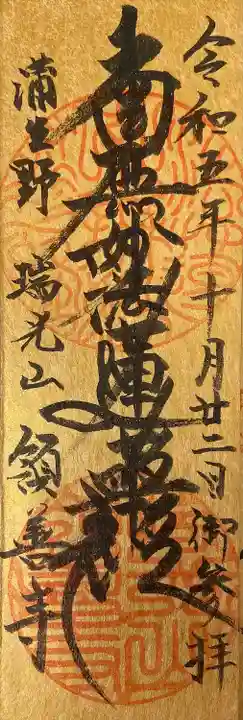 令和五年十月廿二日御参拝
南無妙法蓮華経
蒲生野 瑞光山 領善寺